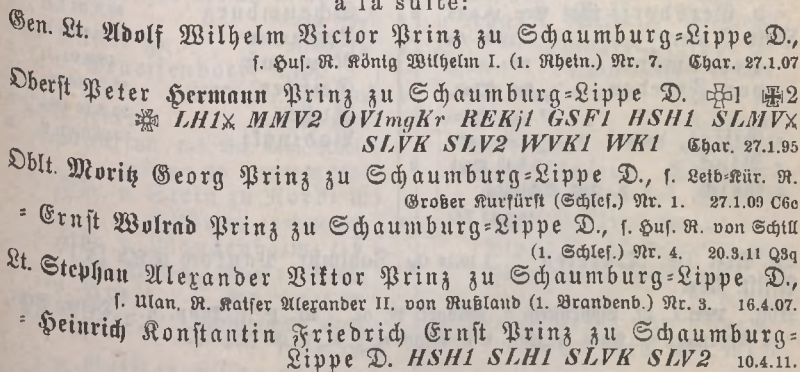 à la suite:
Gen. Lt. Adolf Wilhelm Victor Prinz zu Schaumburg=Lippe D.,
s. Hus. R. König Wilhelm I. (1. Rhein.) Nr. 7. Char. 27.1.07
Oberst Peter Hermann Prinz zu Schaumburg=Lippe D. 1 2
LH1⚔ MMV2 OV1mgKr REKj1 GSF1 HSH1 SLMV⚔
SLVK SLV2 WVK1 WK1 Char. 27.1.95
Oblt. Moritz Georg Prinz zu Schaumburg=Lippe D., s. Leib=Kür. R.
Großer Kurfürst (Schles.) Nr. 1. 27.1.09 C6c
= Ernst Wolrad Prinz zu Schaumburg=Lippe D., s. Hus. R. von Schill
(1. Schles.) Nr. 4. 20.3.11 Q3q
Lt. Stephan Alexander Viktor Prinz zu Schaumburg=Lippe D.,
s. Ulan. R. Kaiser Alexander II. von Rußland (1. Brandenb.) Nr. 3. 16.4.07.
= Heinrich Konstantin Friedrich Ernst Prinz zu Schaumburg=
Lippe D. HSH1 SLH1 SLVK SLV2 10.4.11.